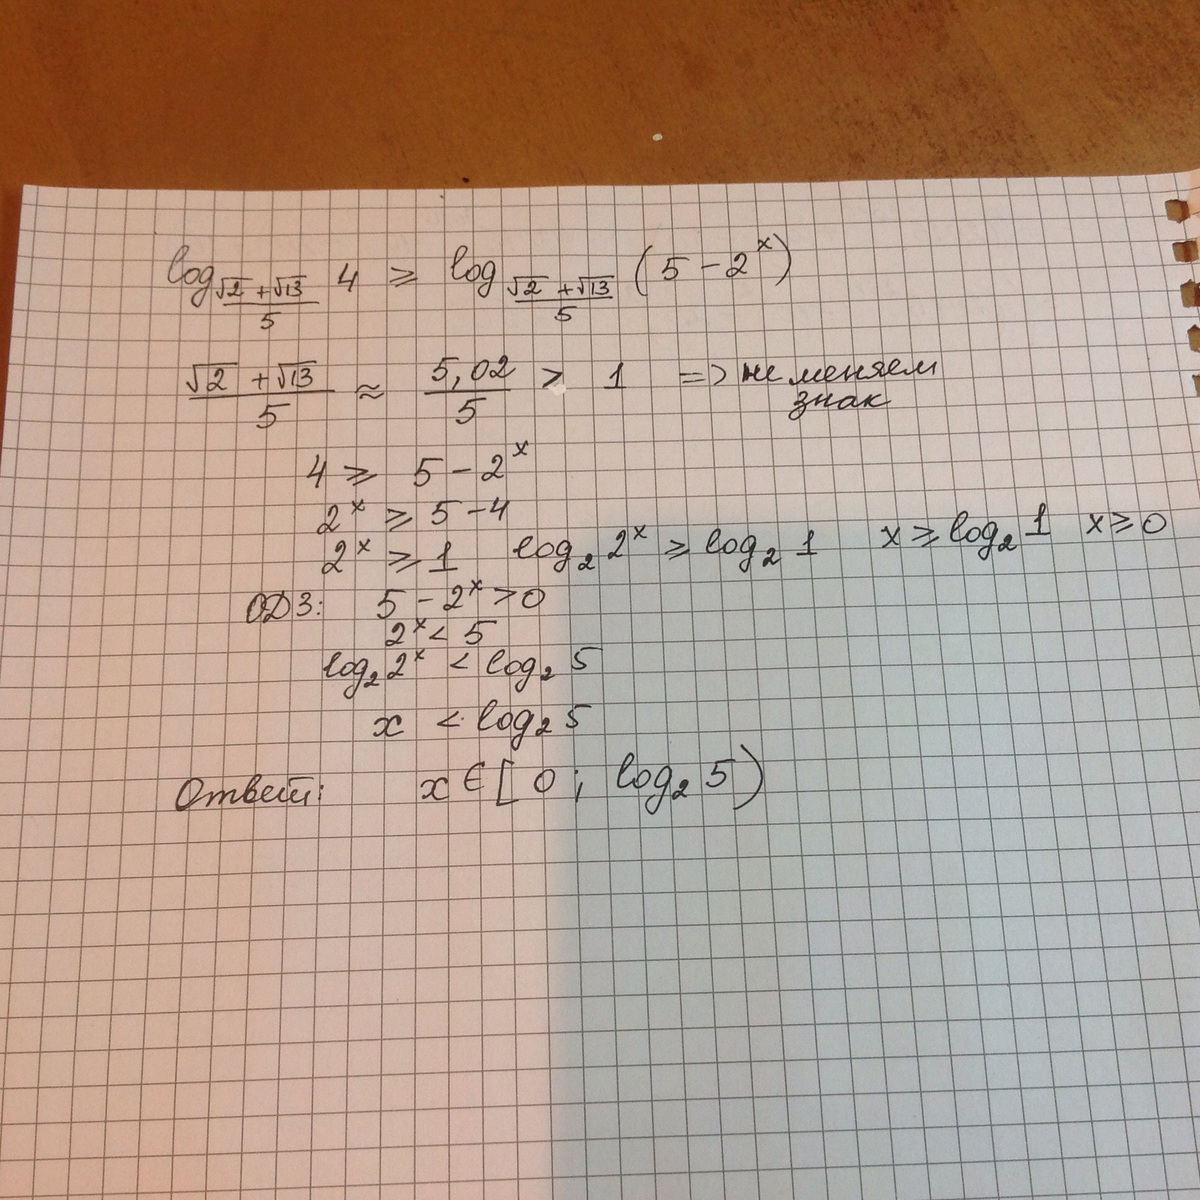 log_{(√2 + √13)/5} 4 ≥ log_{(√2 + √13)/5} (5 - 2^x)
(√2 + √13)/5 ≈ 5,02/5 > 1 => не меняем
знак
4 ≥ 5 - 2^x
2^x ≥ 5 - 4
2^x ≥ 1 log_2 2^x ≥ log_2 1 x ≥ log_2 1 x ≥ 0
ОДЗ: 5 - 2^x > 0
2^x < 5
log_2 2^x < log_2 5
x < log_2 5
Ответ: x ∈ [0; log_2 5)